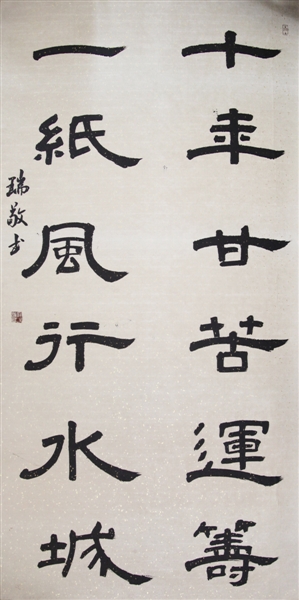 十年甘苦運籌
一紙風行水城
瑞敬书